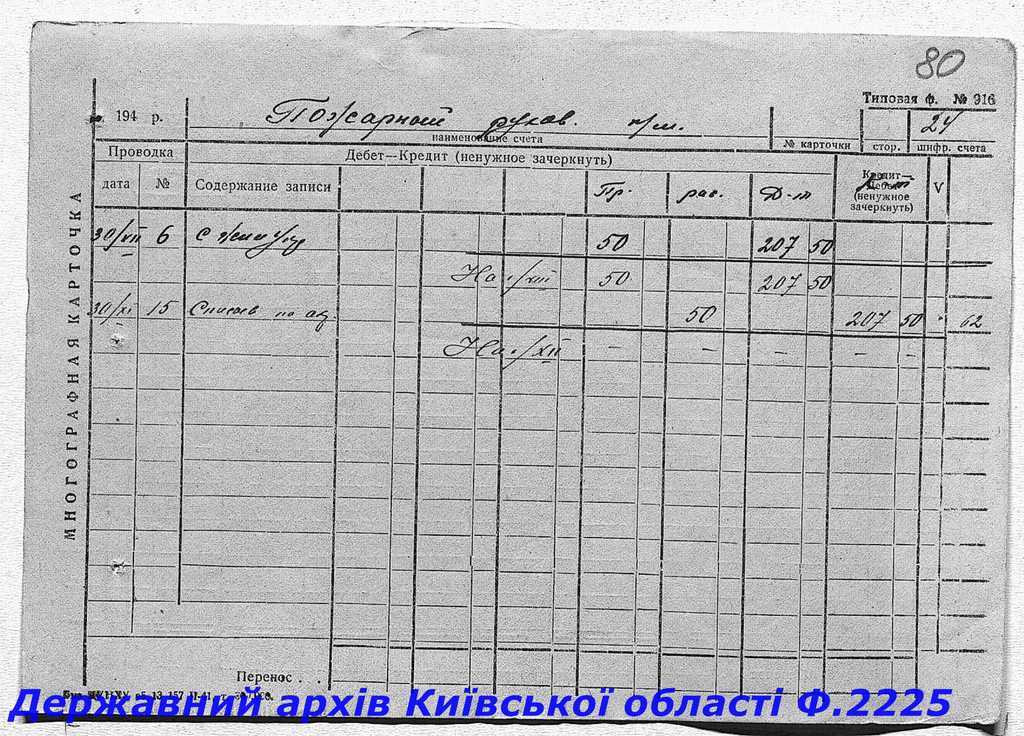 80
Типовая ф. № 916
194 р.
Пожарный рукав. п/м.
24
наименование счета
№ карточки
стор.
шифр. счета
Проводка
Дебет—Кредит (ненужное зачеркнуть)
дата
№
Содержание записи
Пр.
рас.
Д-т
Кредит—
Дебет
(ненужное
зачеркнуть)
V
30/VII 6 50 207 50
На 1/VIII 50 207 50
30/XI 15 Списыв по ак. 50 207 50 62
На 1/XII — — — — —
МНОГОГРАФНАЯ КАРТОЧКА
Перенос . .
Державний архів Київської області Ф.2225